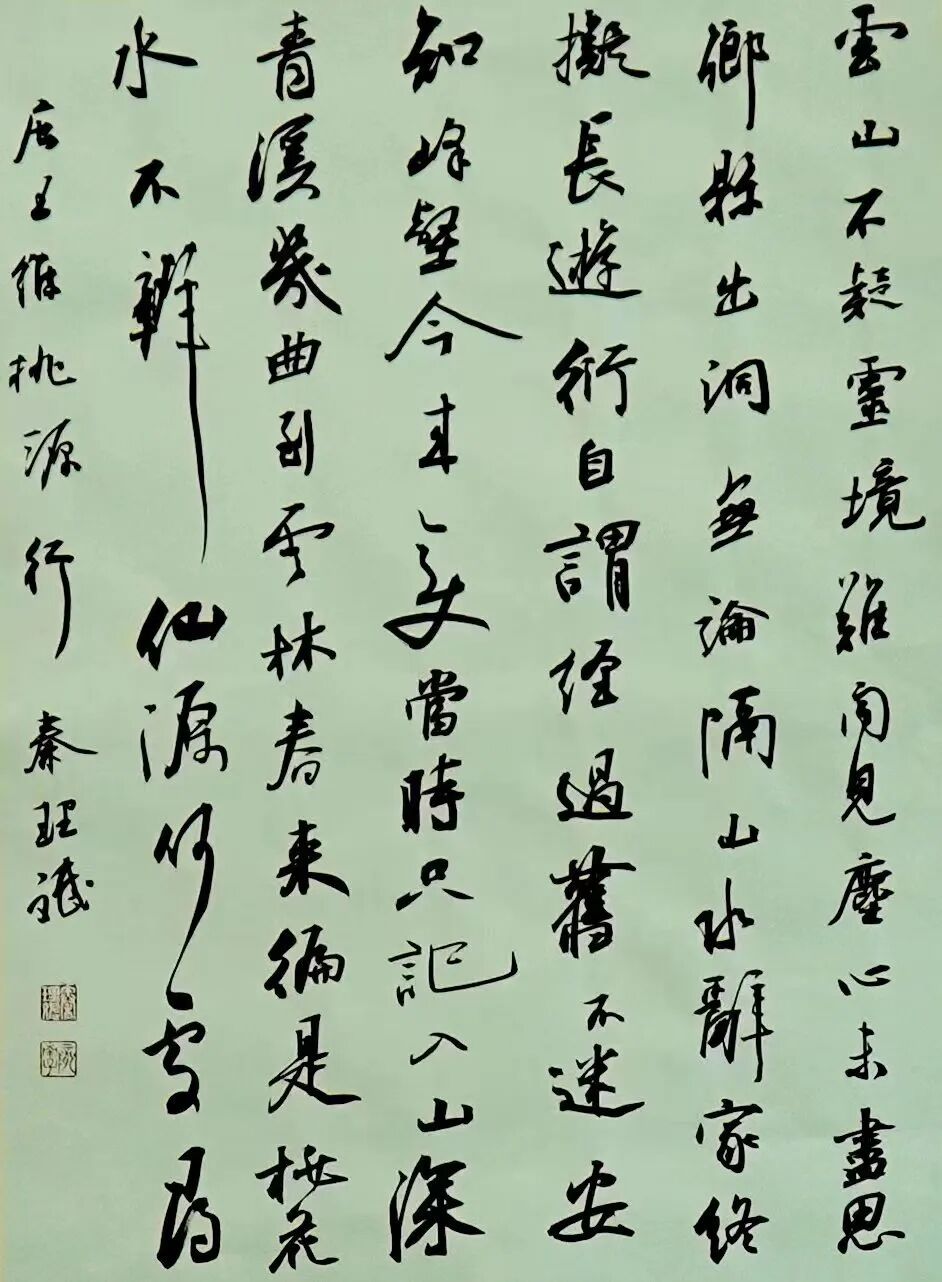 雲山不疑靈境難聞見塵心未盡思
鄉縣出洞無論隔山水辭家終
擬長遊衍自謂經過舊不迷安
知峰壑今来變當時只記入山深
青溪幾曲到雲林春来徧是桃花
水不辨仙源何處尋
唐王維桃源行 秦